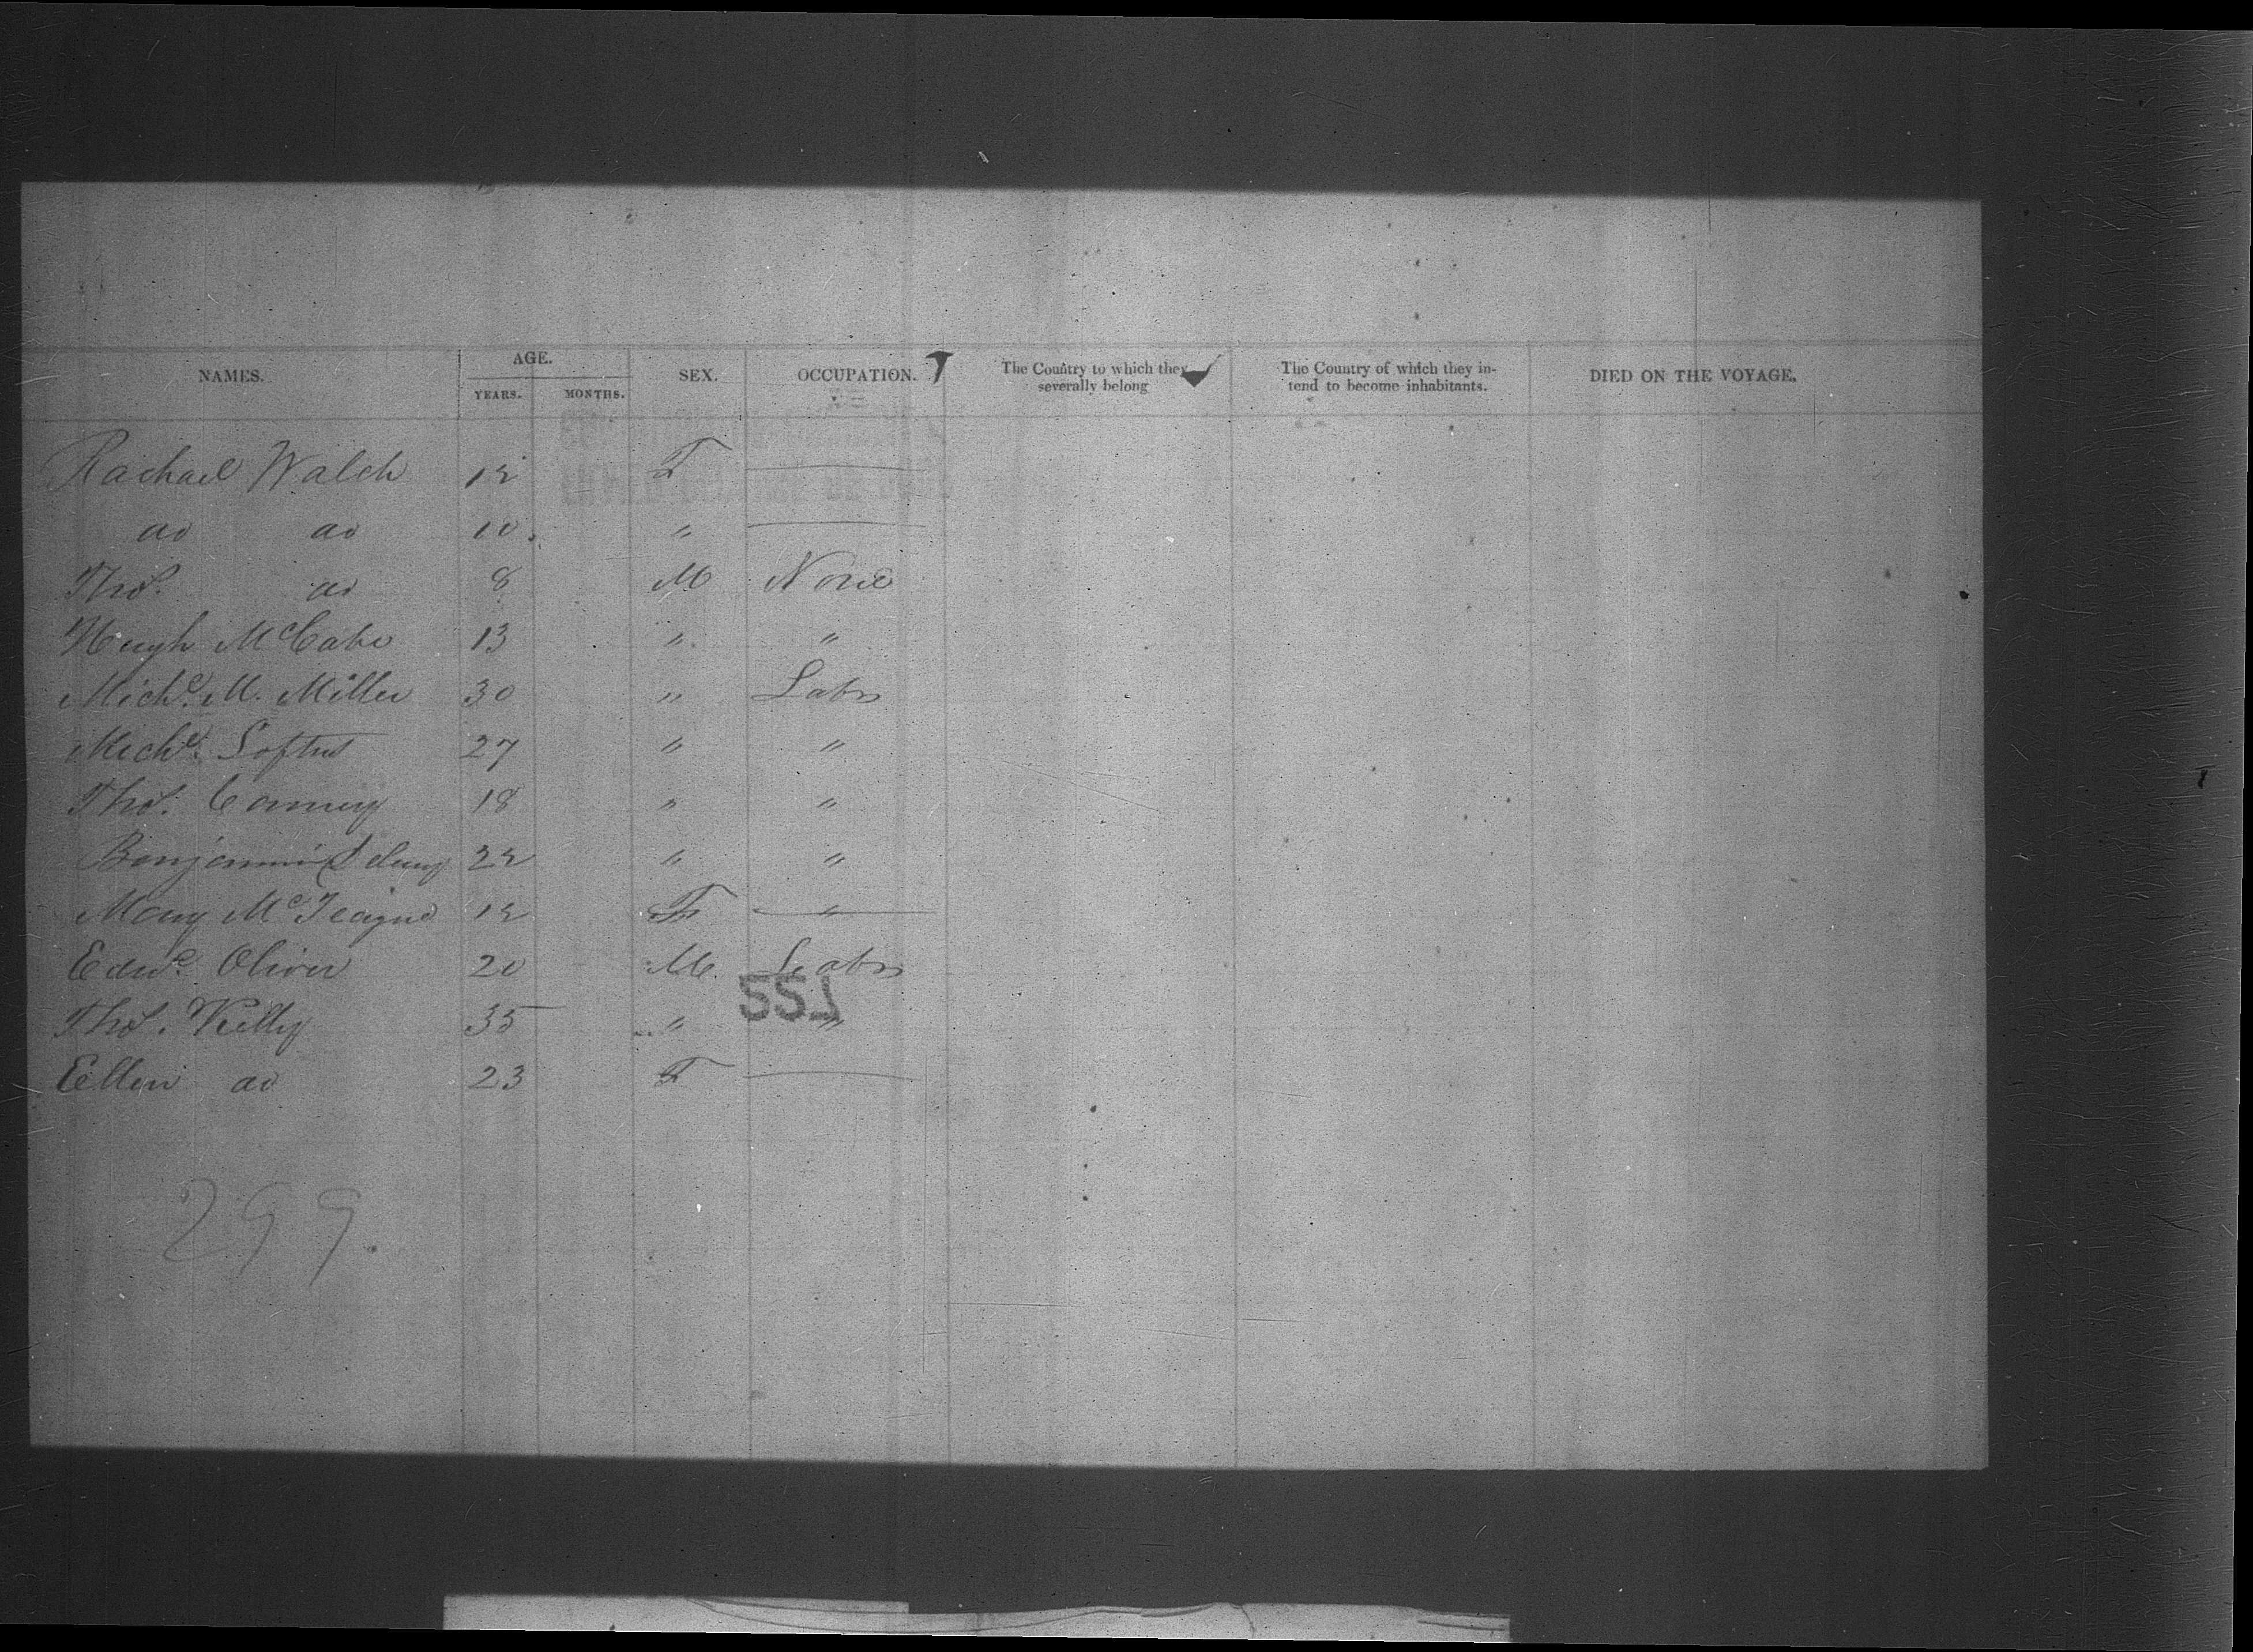 NAMES. AGE. SEX. OCCUPATION. The Country to which they severally belong The Country of which they intend to become inhabitants. DIED ON THE VOYAGE.
YEARS. MONTHS.
Rachael Walch 12 F
do do 10 "
Thos. do 8 M None
Hugh McCabe 13 " "
Michl. M. Miller 30 " Labr
Michl. Loftus 27 " "
Thos. 18 " "
Benjamin 22 " "
Mary McTeague 12 F "
Edwd Oliver 20 M. Labr
Thos. Kelly 35 " "
Ellen do 23 F
299.